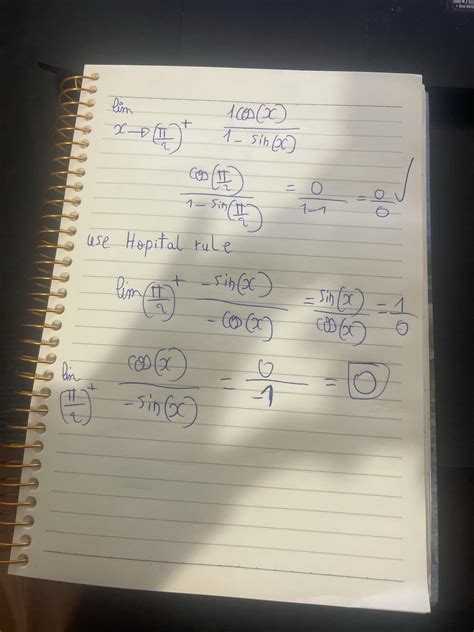 lim x→(π/2)⁺ 1cos(x)/1-sin(x)
cos(π/2)/1-sin(π/2) = 0/1-1 = 0/0 ✓
use Hopital rule
lim (π/2)⁺ -sin(x)/-cos(x) = sin(x)/cos(x) = 1/0
lim (π/2)⁺ cos(x)/-sin(x) = 0/-1 = 0